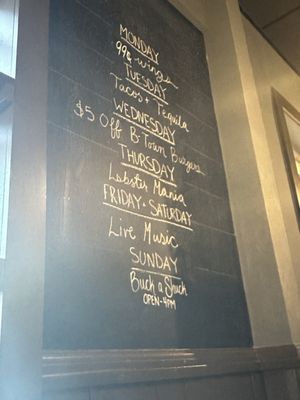 MONDAY
99¢ wings
TUESDAY
Tacos + Tequila
WEDNESDAY
$5 Off B-Town Burgers
THURSDAY
Lobster Mania
FRIDAY + SATURDAY
Live Music
SUNDAY
Buck a Shuck
OPEN-4PM